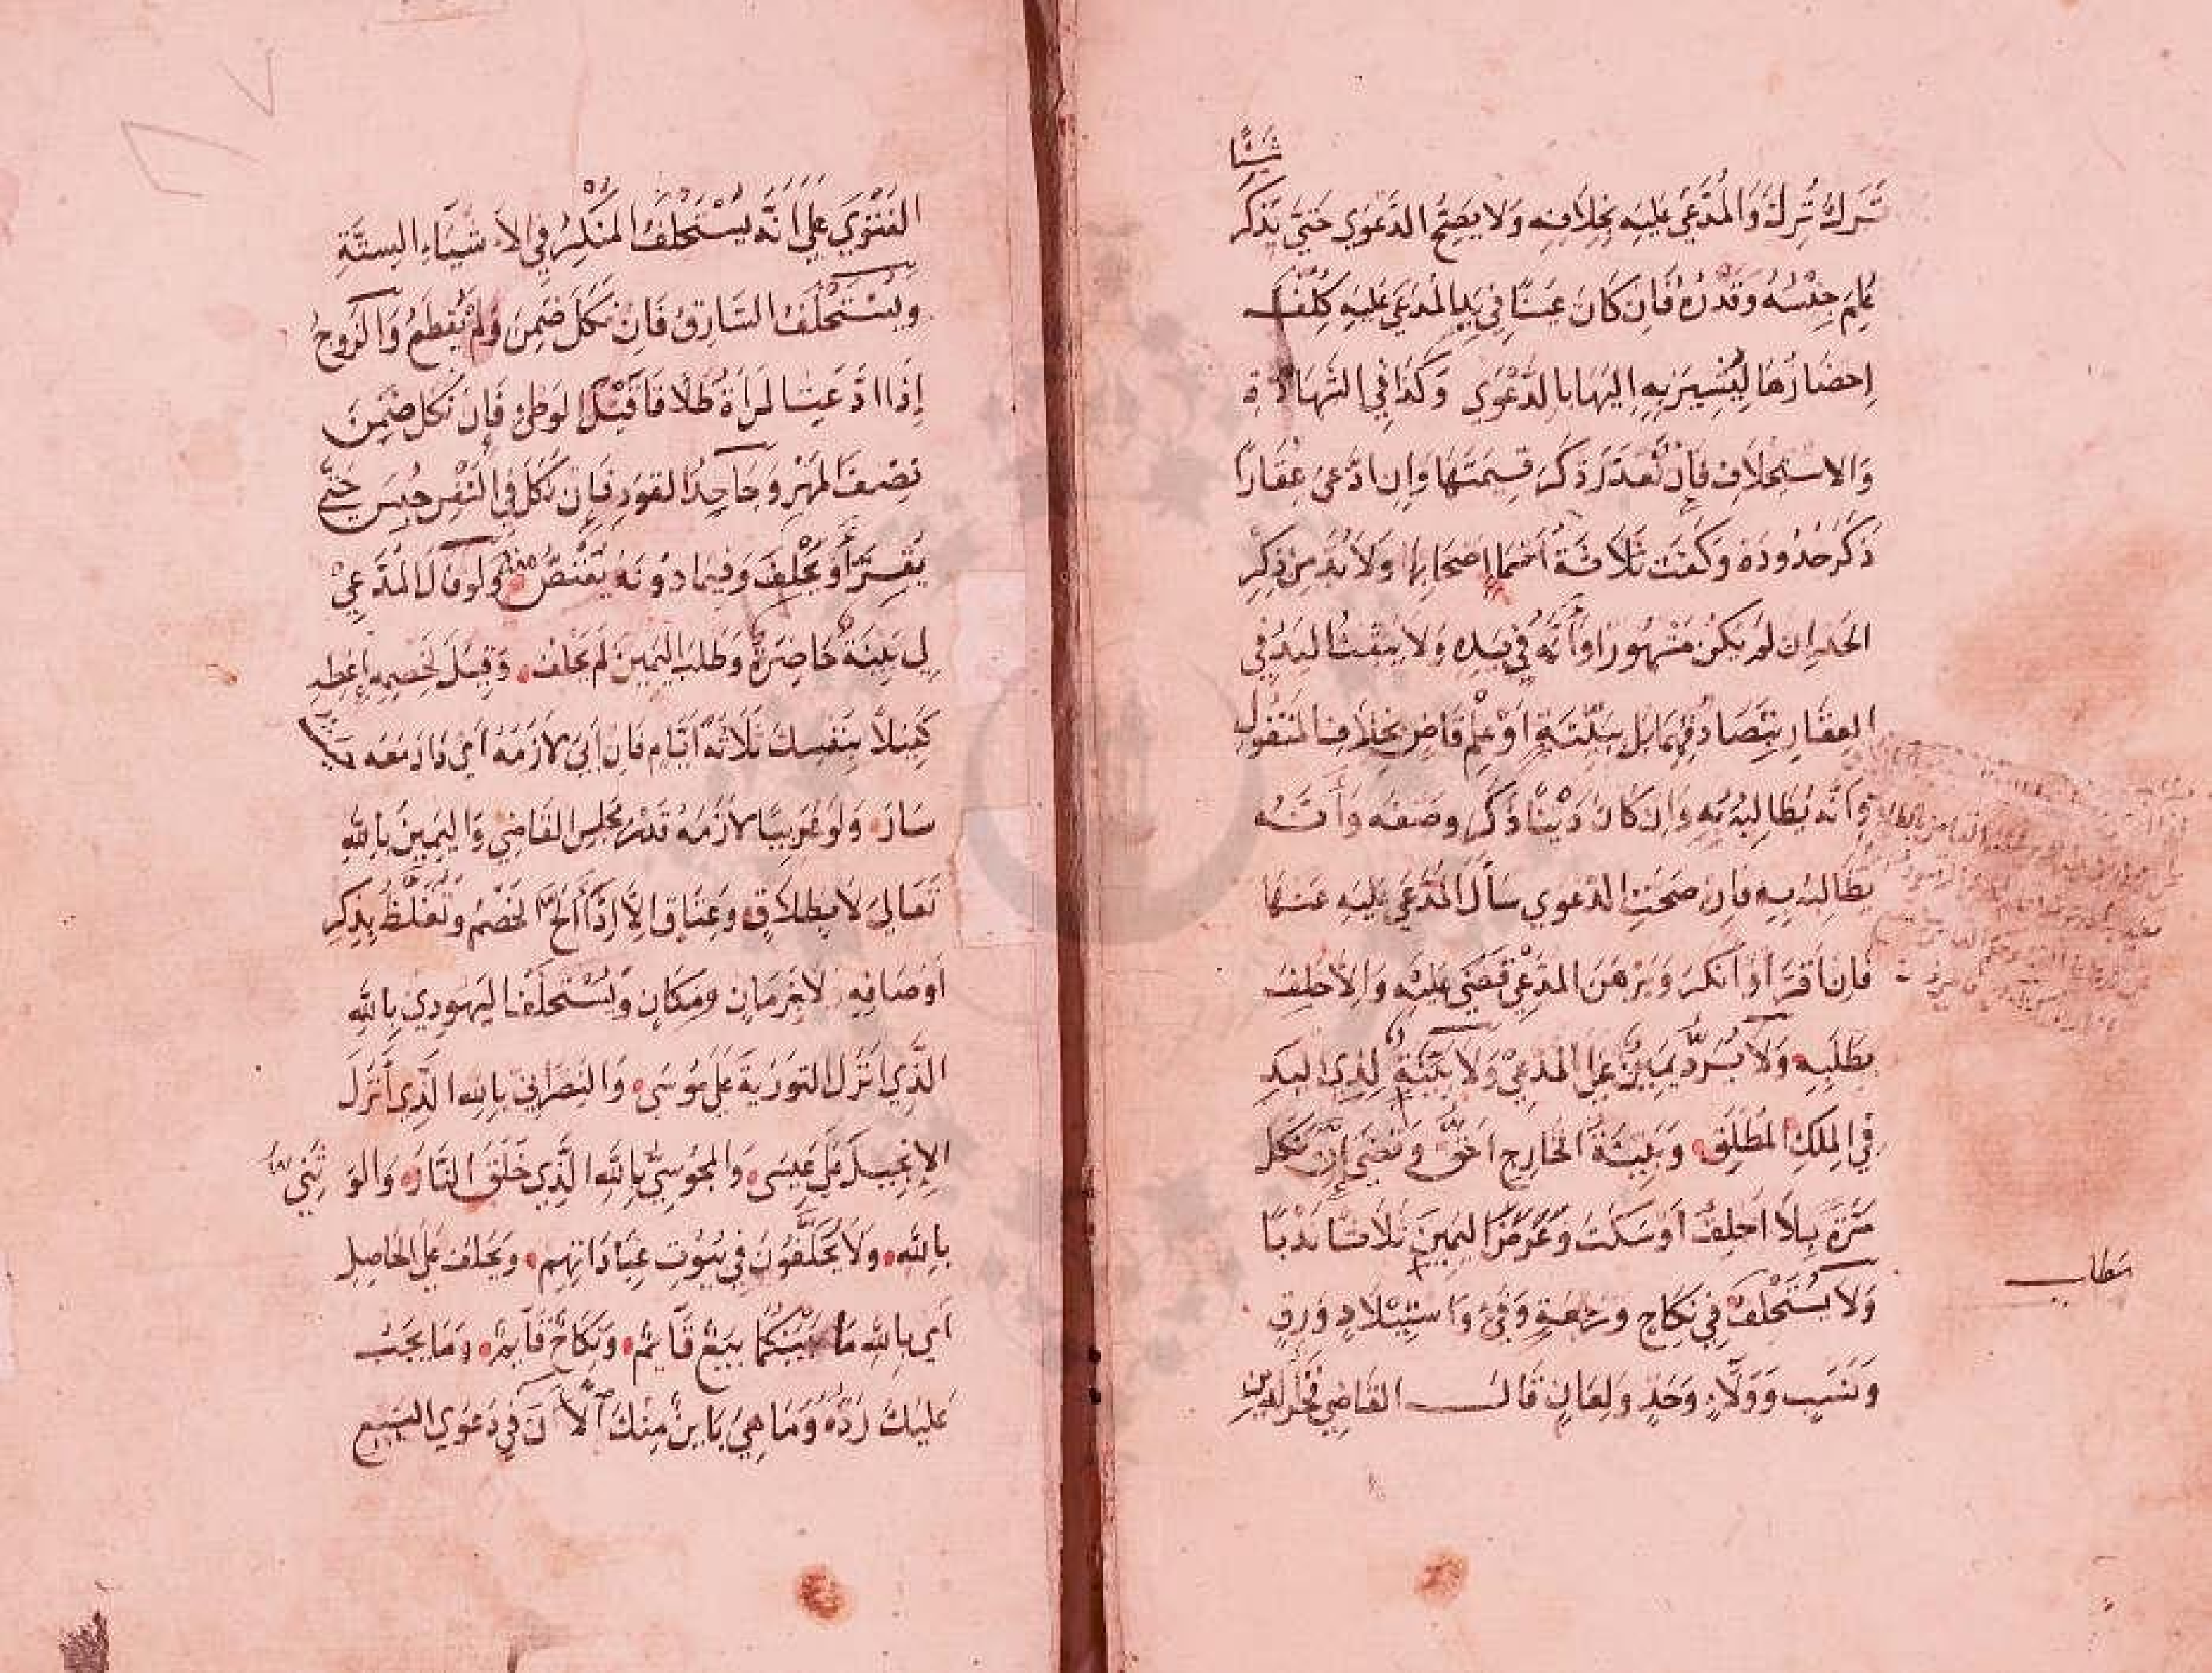 شيئا
ترك ترك والمدعي عليه بخلافه ولا يصح الدعوي حتي يذكر
علم جنسه وقدره فان كان عينا في يد المدعي عليه كلف
احضارها ليشير به اليها بالدعوي وكذا في الشهادة
والاستحلاف فان تعذر ذكر قيمتها وان ادعي عقارا
ذكر حدوده وكفت ثلاثة اسما اصحابها ولا بد من ذكر
الجد ان لم يكن مشهورا وانه في يده ولا يثبت اليد في
العقار بتصادقهما بل ببينة او علم قاض بخلاف المنقول
وانه يطالبه به وان كان دينا ذكر وصفه وانه
يطالبه به فان صحت الدعوي سأل المدعي عليه عنها
فان اقر او انكر وبرهن المدعي قضي عليه والا حلف
بطلبه ولا يرد يمين علي المدعي ولا بينة لذي اليد
في الملك المطلق وبينة الخارج احق وقضي ان نكل
مرة بلا احلف او سكت وعرض اليمين ثلاثا ندبا
ولا يستحلف في نكاح ورجعة وفئ واستيلاد ورق
ونسب وولاء وحد ولعان قال القاضي فخر الدين
مطلب
الفتوي علي انه يستحلف المنكر في الاشياء الستة
ويستحلف السارق فان نكل ضمن ولم يقطع والزوج
اذا ادعت المراة طلاقا قبل الوطئ فان نكل ضمن
نصف المهر وجاحد القود فان نكل في النفس حبس حتي
يقر او يحلف وفيما دونه يقتص ولو قال المدعي
لي بينة حاضرة وطلب اليمين لم يحلف وقيل لخصمه اعطه
كفيلا بنفسك ثلاثة ايام فان ابي لازمه اي دار معه
سار ولو غريبا لازمه قدر مجلس القاضي واليمين بالله
تعالي لا بطلاق وعتاق الا اذا الح الخصم وتغلظ بذكر
اوصافه لا بزمان ومكان ويستحلف اليهودي بالله
الذي انزل التورية علي موسي والنصراني بالله الذي انزل
الانجيل علي عيسي والمجوسي بالله الذي خلق النار والوثني
بالله ولا يحلفون في بيوت عباداتهم ويحلف علي الحاصل
اي بالله ما بينكما بيع قائم ونكاح قائم وما يجب
عليك رده وما هي باين منك الآن في دعوي البيع